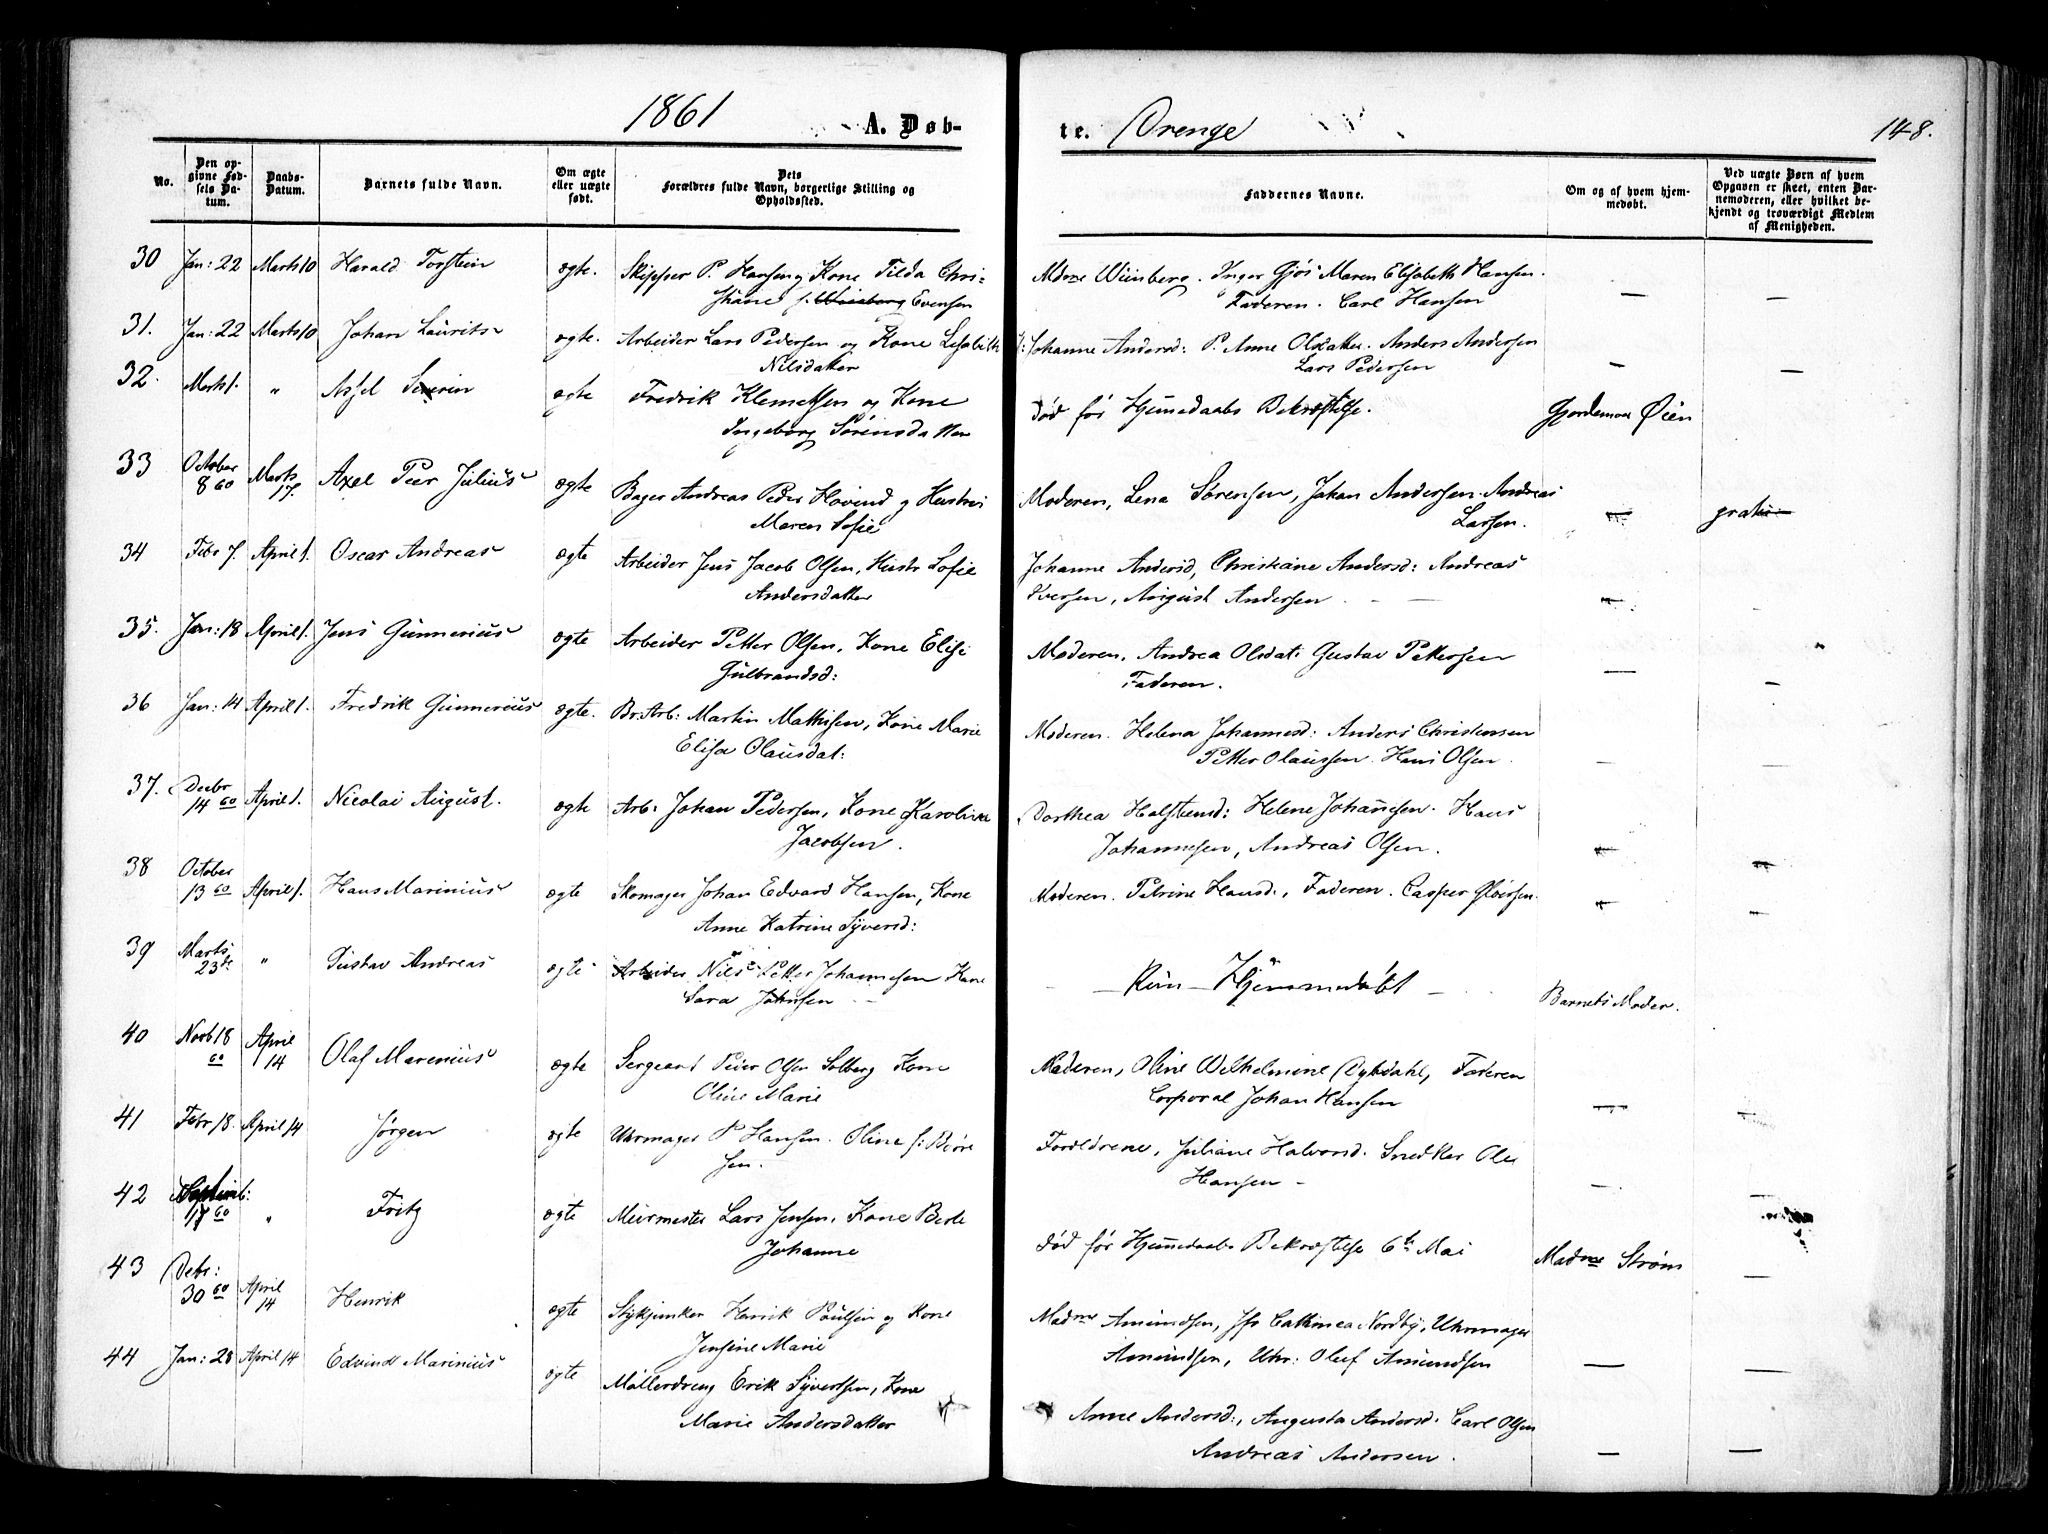 1861 A. Døb-
te. Drenge 148.
No.
Den op-
givne Fød-
sels Da-
tum.
Daabs-
Datum.
Barnets fulde Navn.
Om ægte
eller uægte
født.
Dets
Forældres fulde Navn, borgerlige Stilling og
Opholdssted.
Faddernes Navne.
Om og af hvem hjem-
medøbt.
Ved uægte Børn af hvem
Opgaven er skeet, enten Bar-
nemoderen, eller hvilket be-
kjendt og troværdigt Medlem
af Menigheden.
30 Jan: 22 Marts 10 Harald Torstein ægte. Skipper P. Hansen og Kone Tilda Chri-
stiane f: Wiinberg Evensen
Mdme Wiinberg. Inger Gjøs Maren Elisabeth Hansen.
Faderen. Carl Hansen —
31. Jan: 22 Marts 10 Johan Laurits ægte. Arbeider Lars Pedersen og Kone Lisabeth
Nilsdatter
Johanne Andersd: P. Anne Olsdatter. Anders Andersen
Lars Pedersen — —
32. Marts 1. " Axel Severin ægte Fredrik Klemetsen og Kone
Ingeborg Sørensdatter
død før Hjemmedaabs Bekræftelse. Gjordemoer Øien
33 October
8 60 Marts
17. Axel Peer Julius ægte Bager Andreas Peder Hovind og Hustru
Maren Sofie
Moderen, Lena Sørensen, Johan Andersen. Andreas
Larsen. — gratis
34 Febr 7. April 1. Oscar Andreas ægte Arbeider Jens Jacob Olsen, Hustr Sofie
Andersdatter
Johanne Andersd, Christiane Andersd: Andreas
Iversen, August Andersen —
35. Jan: 18 April 1. Jens Gunnerius ægte Arbeider Petter Olsen, Kone Elise
Gulbrandsd:
Moderen, Andrea Olsdat: Gustav Pettersen
Faderen. — —
36 Jan: 14 April 1. Fredrik Gunnerius ægte. Br: Arb: Martin Mathisen, Kone Marie
Elise Olausdat:
Moderen. Helena Johannesd: Anders Christensen
Petter Olaussen. Hans Olsen. — —
37. Decbr
14 60 April 1. Nicolai August. ægte Arb: Johan Pedersen, Kone Karoline
Jacobsen.
Dorthea Halstensd: Helene Johannesen. Hans
Johannesen, Andreas Olsen. — —
38 October
13 60 April 1. Hans Marinius ægte Skomager Johan Edvard Hansen, Kone
Anne Katrine Syversd:
Moderen. Petrine Hansd:, Faderen. Casper — —
39 Marts
23de " Gustav Andreas ægte Arbeider Nils Petter Johannesen Kone
Sara Johnsen
— Kun Hjemmedøbt — Barnets Moder.
40 Novb 18
60 April
14 Olaf Marenius ægte Sergeant Peder Olsen Solberg Kone
Oline Marie
Moderen, Oline Wilhelmine Dybdahl, Faderen
Corporal Johan Hansen —
41 Febr 18. April 14 Jørgen ægte Uhrmager P Hansen. Oline f: Børre
sen.
Forældrene, Juliane Halvorsd. Snedker Ole
Hansen — —
42 17 60 " Fritz ægte Muurmester Lars Jensen, Kone Berte
Johanne
død før Hjemmedaabs Bekræftelse 6te Mai Madme Strøm —
43 Debr:
30 60 April
14 Henrik ægte Stykjunker Henrik Poulsen og Kone
Jensine Marie
Madme Amundsen, Jfr Cathinca Nordby, Uhrmager
Amundsen, Uhr: Oluf Amundsen — —
44 Jan: 28 April 14 Edvindt Marinius ægte Møllerdreng Erik Syvertsen, Kone
Marie Andersdatter
Anne Andersd:, Augusta Andersd. Carl Olsen
Andreas Andersen. — —